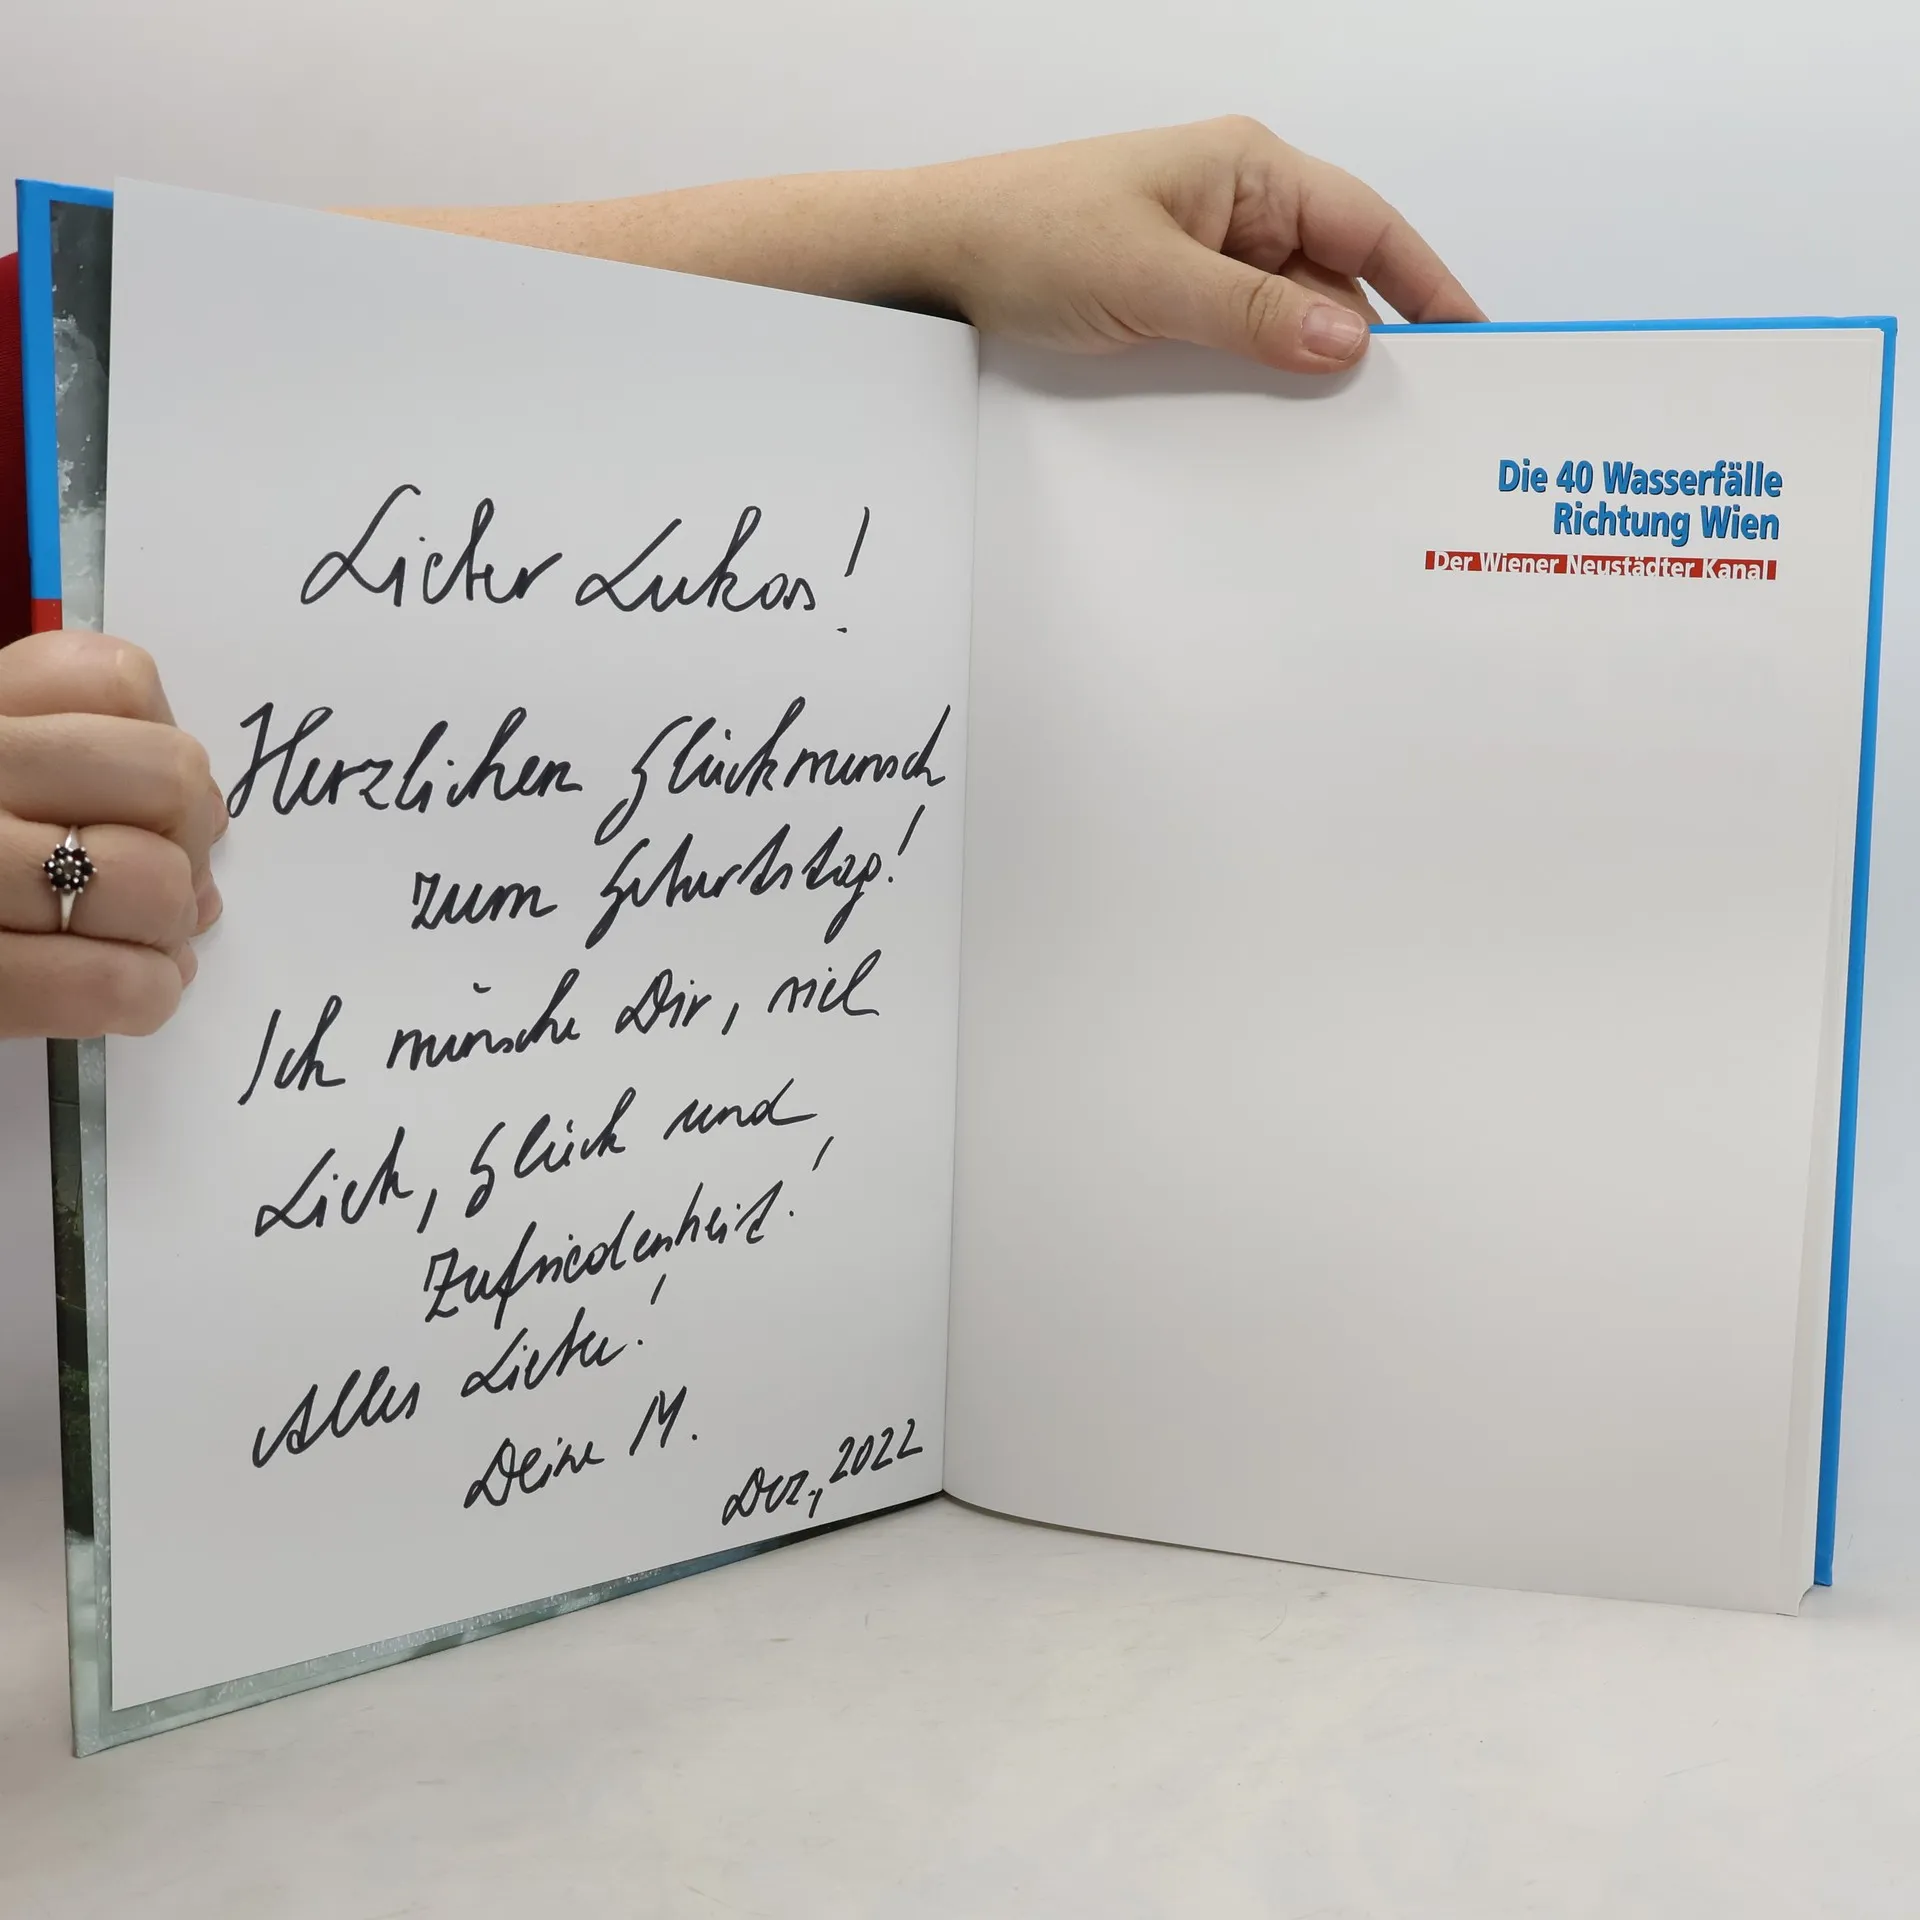 Lieber Lukas!
Herzlichen Glückwunsch
zum Geburtstag!
Ich wünsche Dir, viel
Liebe, Glück und
Zufriedenheit!
Alles Liebe!
Deine M.
Dez, 2022
Die 40 Wasserfälle
Richtung Wien
Der Wiener Neustädter Kanal